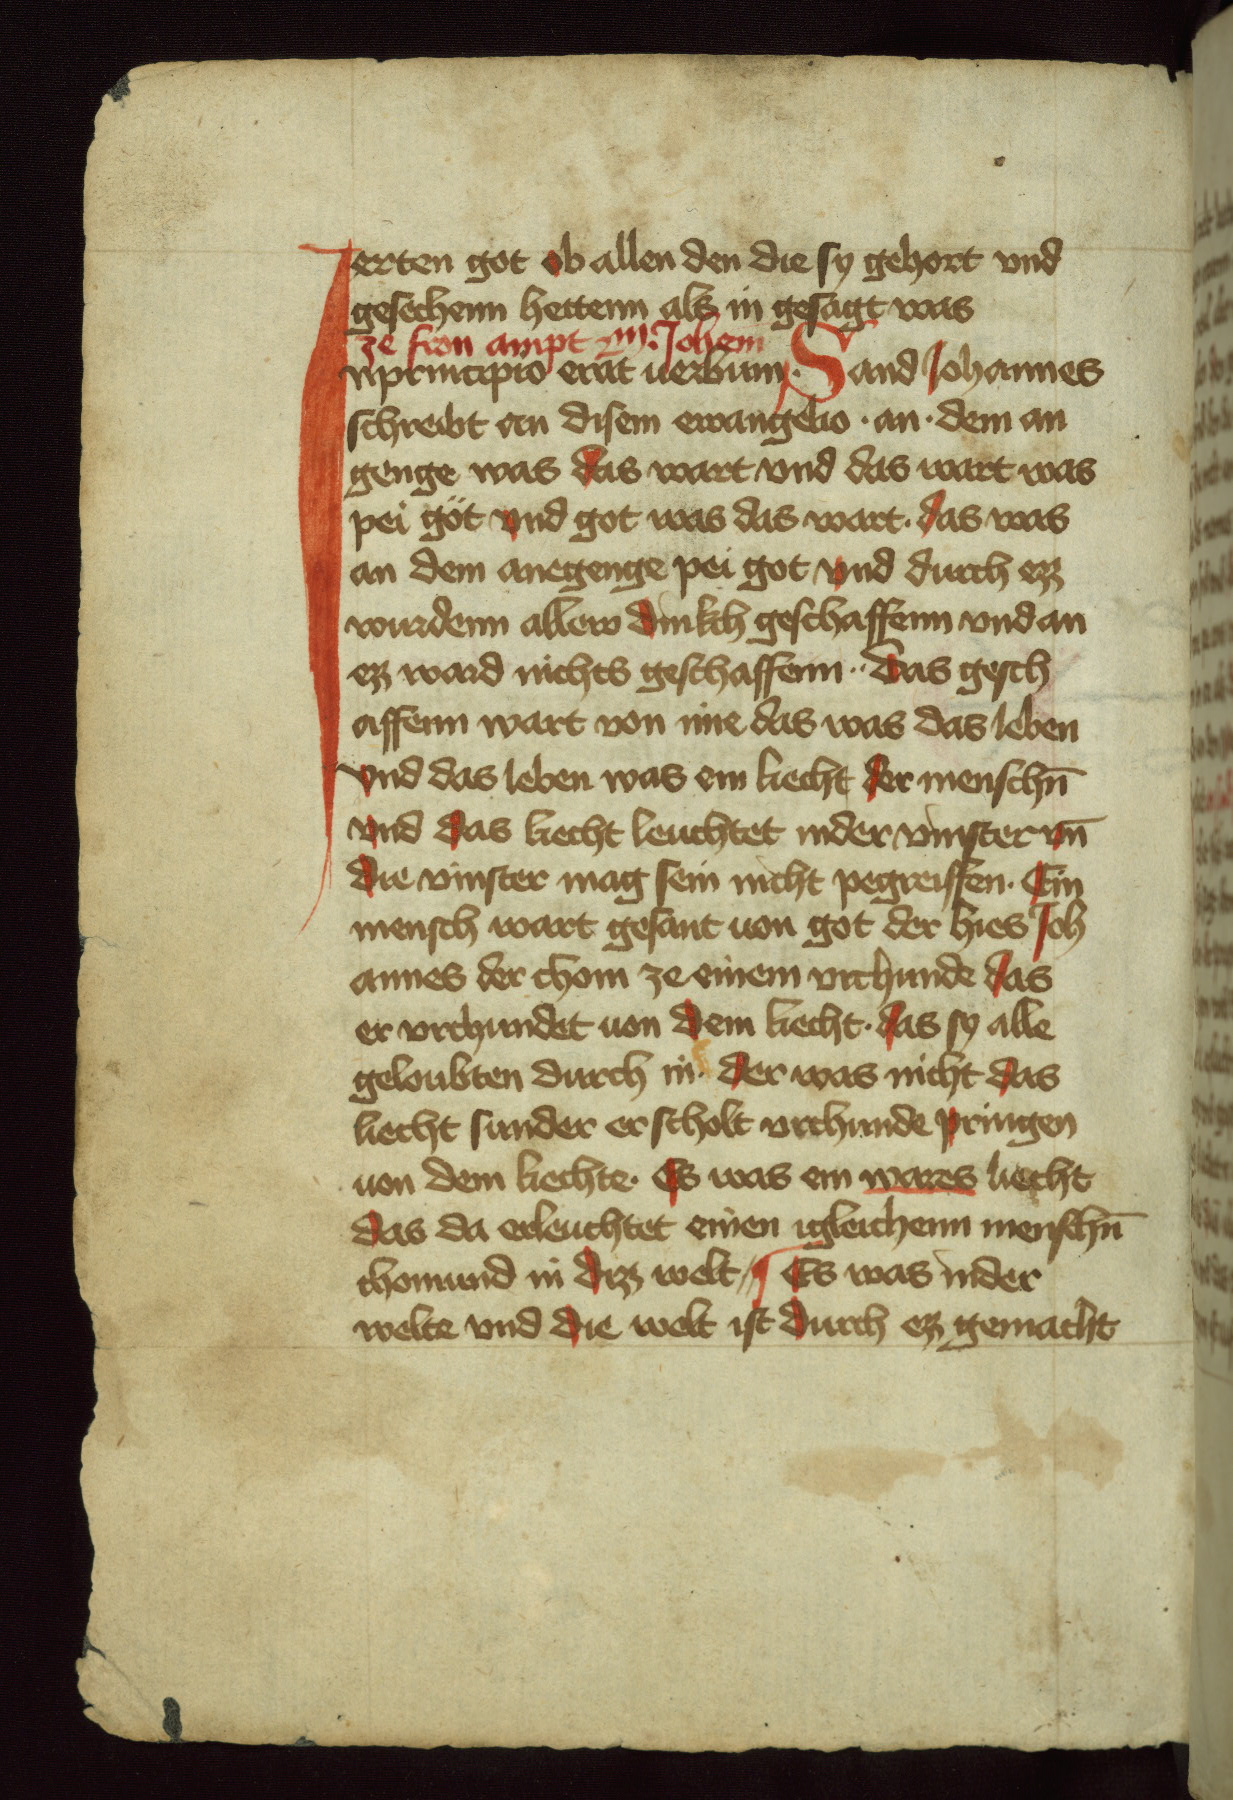 erten got ob allen den die sy gehort vnd
gesechenn hettenn als in gesagt was
ze fron ampt Johem
In principio erat uerbum. Sand Johannes
schreibt an disem ewangelio · an · dem an
genge was das wart vnd das wart was
pei göt vnd got was das wart. das was
an dem anegenge pei got vnd durch ez
wurdenn allew dinkch geschaffenn vnd an
ez ward nichts geschaffenn ·· Das gesch
affenn wart von ime das was das leben
vnd das leben was ein liecht der menschn̄
vnd das liecht leuchtet inder vinster vn̄
die vinster mag sein nicht pegreiffen. Ein
mensch wart gesant uon got der hies Joh
annes der chom ze einem vrchunde das
er vrchundet uon dem liecht · das sy alle
geloubten durch in · der was nicht das
liecht sunder er scholt vrchunde pringen
uon dem liechte. Es was ein wares liecht
das da erleuchtet einen igleichenn menschn̄
chomund in diz welt // ¶ Es was inder
welte vnd die welt ist durch ez gemacht